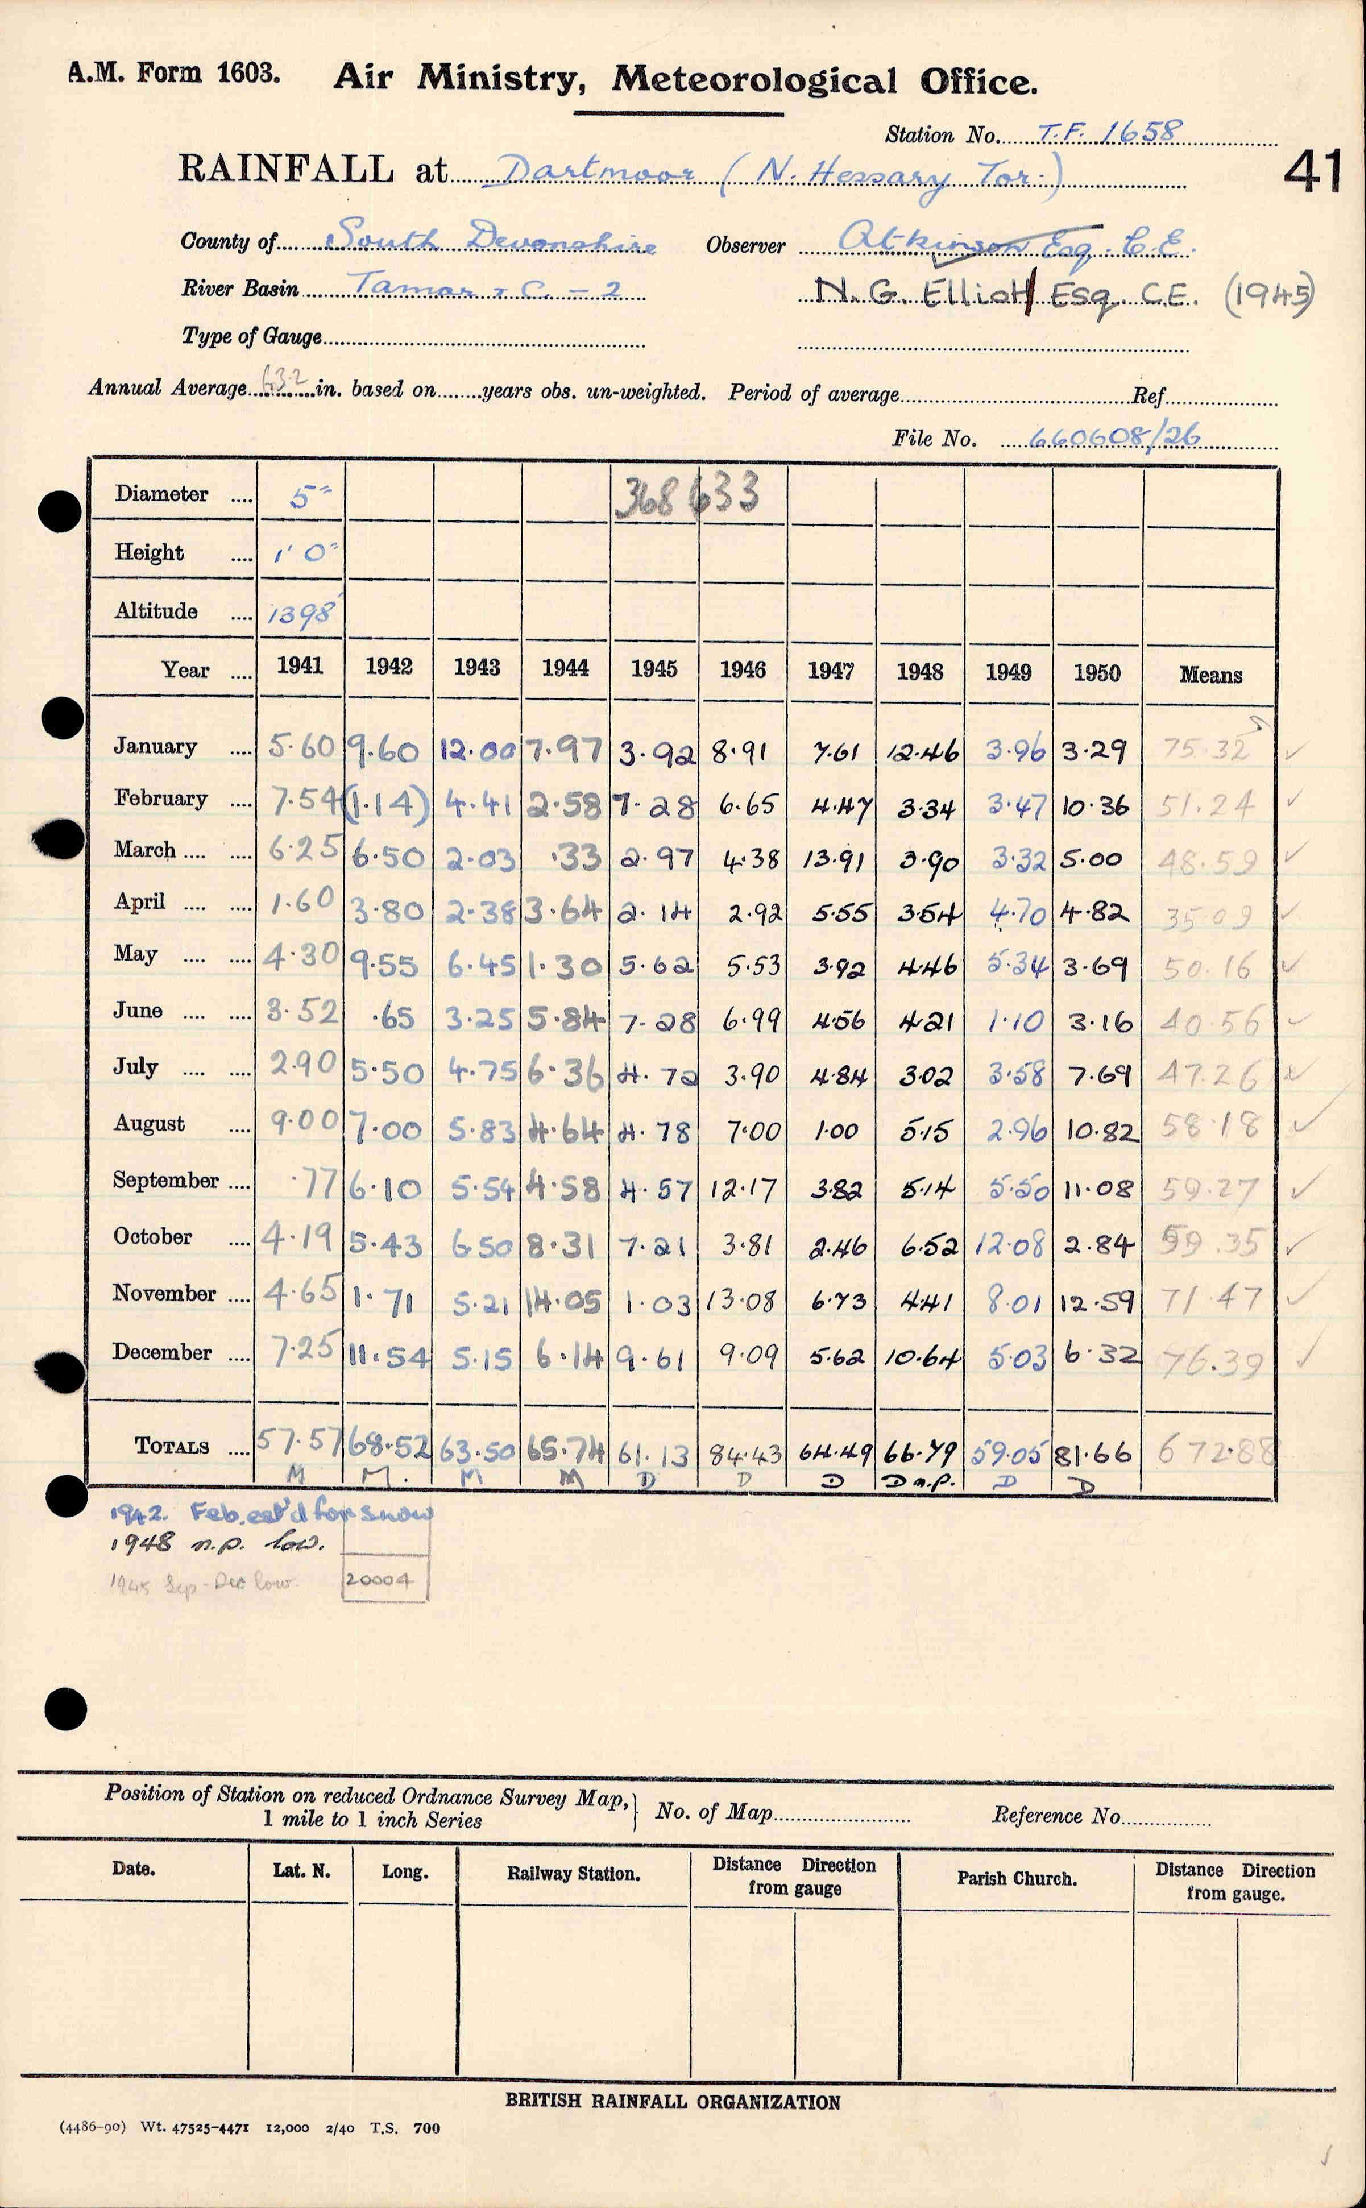 A.M. Form 1603. Air Ministry, Meteorological Office.
Station No. T.F. 1658
41
RAINFALL at Dartmoor (N. Hessary Tor.)
County of South Devonshire Observer Atkinson Esq. C.E.
River Basin Tamar & C. - 2 N. G. Elliott Esq. C.E. (1945)
Type of Gauge
Annual Average 63.2 in. based on years obs. un-weighted. Period of average Ref.
File No. 660608/26
Diameter 5" 368 633
Height 1' 0"
Altitude 1398'
Year 1941 1942 1943 1944 1945 1946 1947 1948 1949 1950 Means
January 5.60 9.60 12.00 7.97 3.92 8.91 7.61 12.46 3.96 3.29 75.32
February 7.54 (1.14) 4.41 2.58 7.28 6.65 4.47 3.34 3.47 10.36 51.24
March 6.25 6.50 2.03 .33 2.97 4.38 13.91 3.90 3.32 5.00 48.59
April 1.60 3.80 2.38 3.64 2.14 2.92 5.55 3.54 4.70 4.82 35.09
May 4.30 9.55 6.45 1.30 5.62 5.53 3.92 4.46 5.34 3.69 50.16
June 3.52 .65 3.25 5.84 7.28 6.99 4.56 4.21 1.10 3.16 40.56
July 2.90 5.50 4.75 6.36 4.72 3.90 4.84 3.02 3.58 7.69 47.26
August 9.00 7.00 5.83 4.64 4.78 7.00 1.00 5.15 2.96 10.82 58.18
September .77 6.10 5.54 4.58 4.57 12.17 3.82 5.14 5.50 11.08 59.27
October 4.19 5.43 6.50 8.31 7.21 3.81 2.46 6.52 12.08 2.84 59.35
November 4.65 1.71 5.21 14.05 1.03 13.08 6.73 4.41 8.01 12.59 71.47
December 7.25 11.54 5.15 6.14 9.61 9.09 5.62 10.64 5.03 6.32 76.39
TOTALS 57.57 68.52 63.50 65.74 61.13 84.43 64.49 66.79 59.05 81.66 672.88
M M. M M D D D D n.p. D D
1942. Feb. est'd for snow
1948 n.p. low.
1945 Sep-Dec low. 20004
Position of Station on reduced Ordnance Survey Map,
1 mile to 1 inch Series
No. of Map Reference No.
Date. Lat. N. Long. Railway Station. Distance Direction from gauge Parish Church. Distance Direction from gauge.
BRITISH RAINFALL ORGANIZATION
(4486-90) Wt. 47525-4471 12,000 2/40 T.S. 700